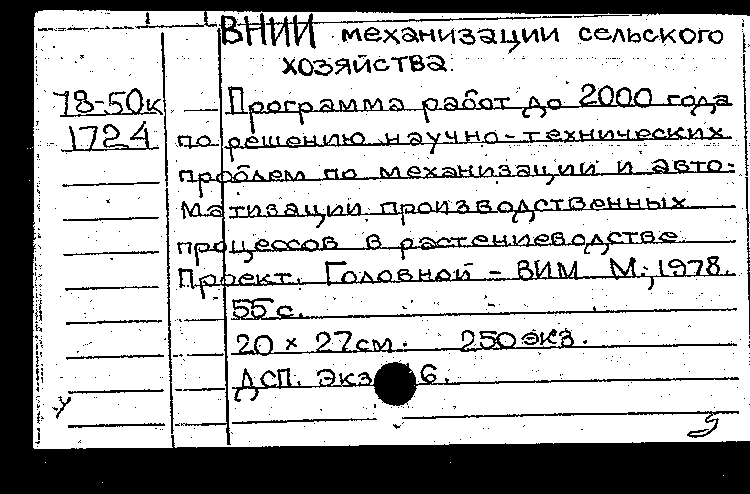 ВНИИ механизации сельского
хозяйства.
78-50к Программа работ до 2000 года
1724 по решению научно-технических
проблем по механизации и авто-
матизации производственных
процессов в растениеводстве.
Проект. Головной - ВИМ М., 1978.
55 с.
20 × 27 см. 250 экз.
ДСП. Экз 6.